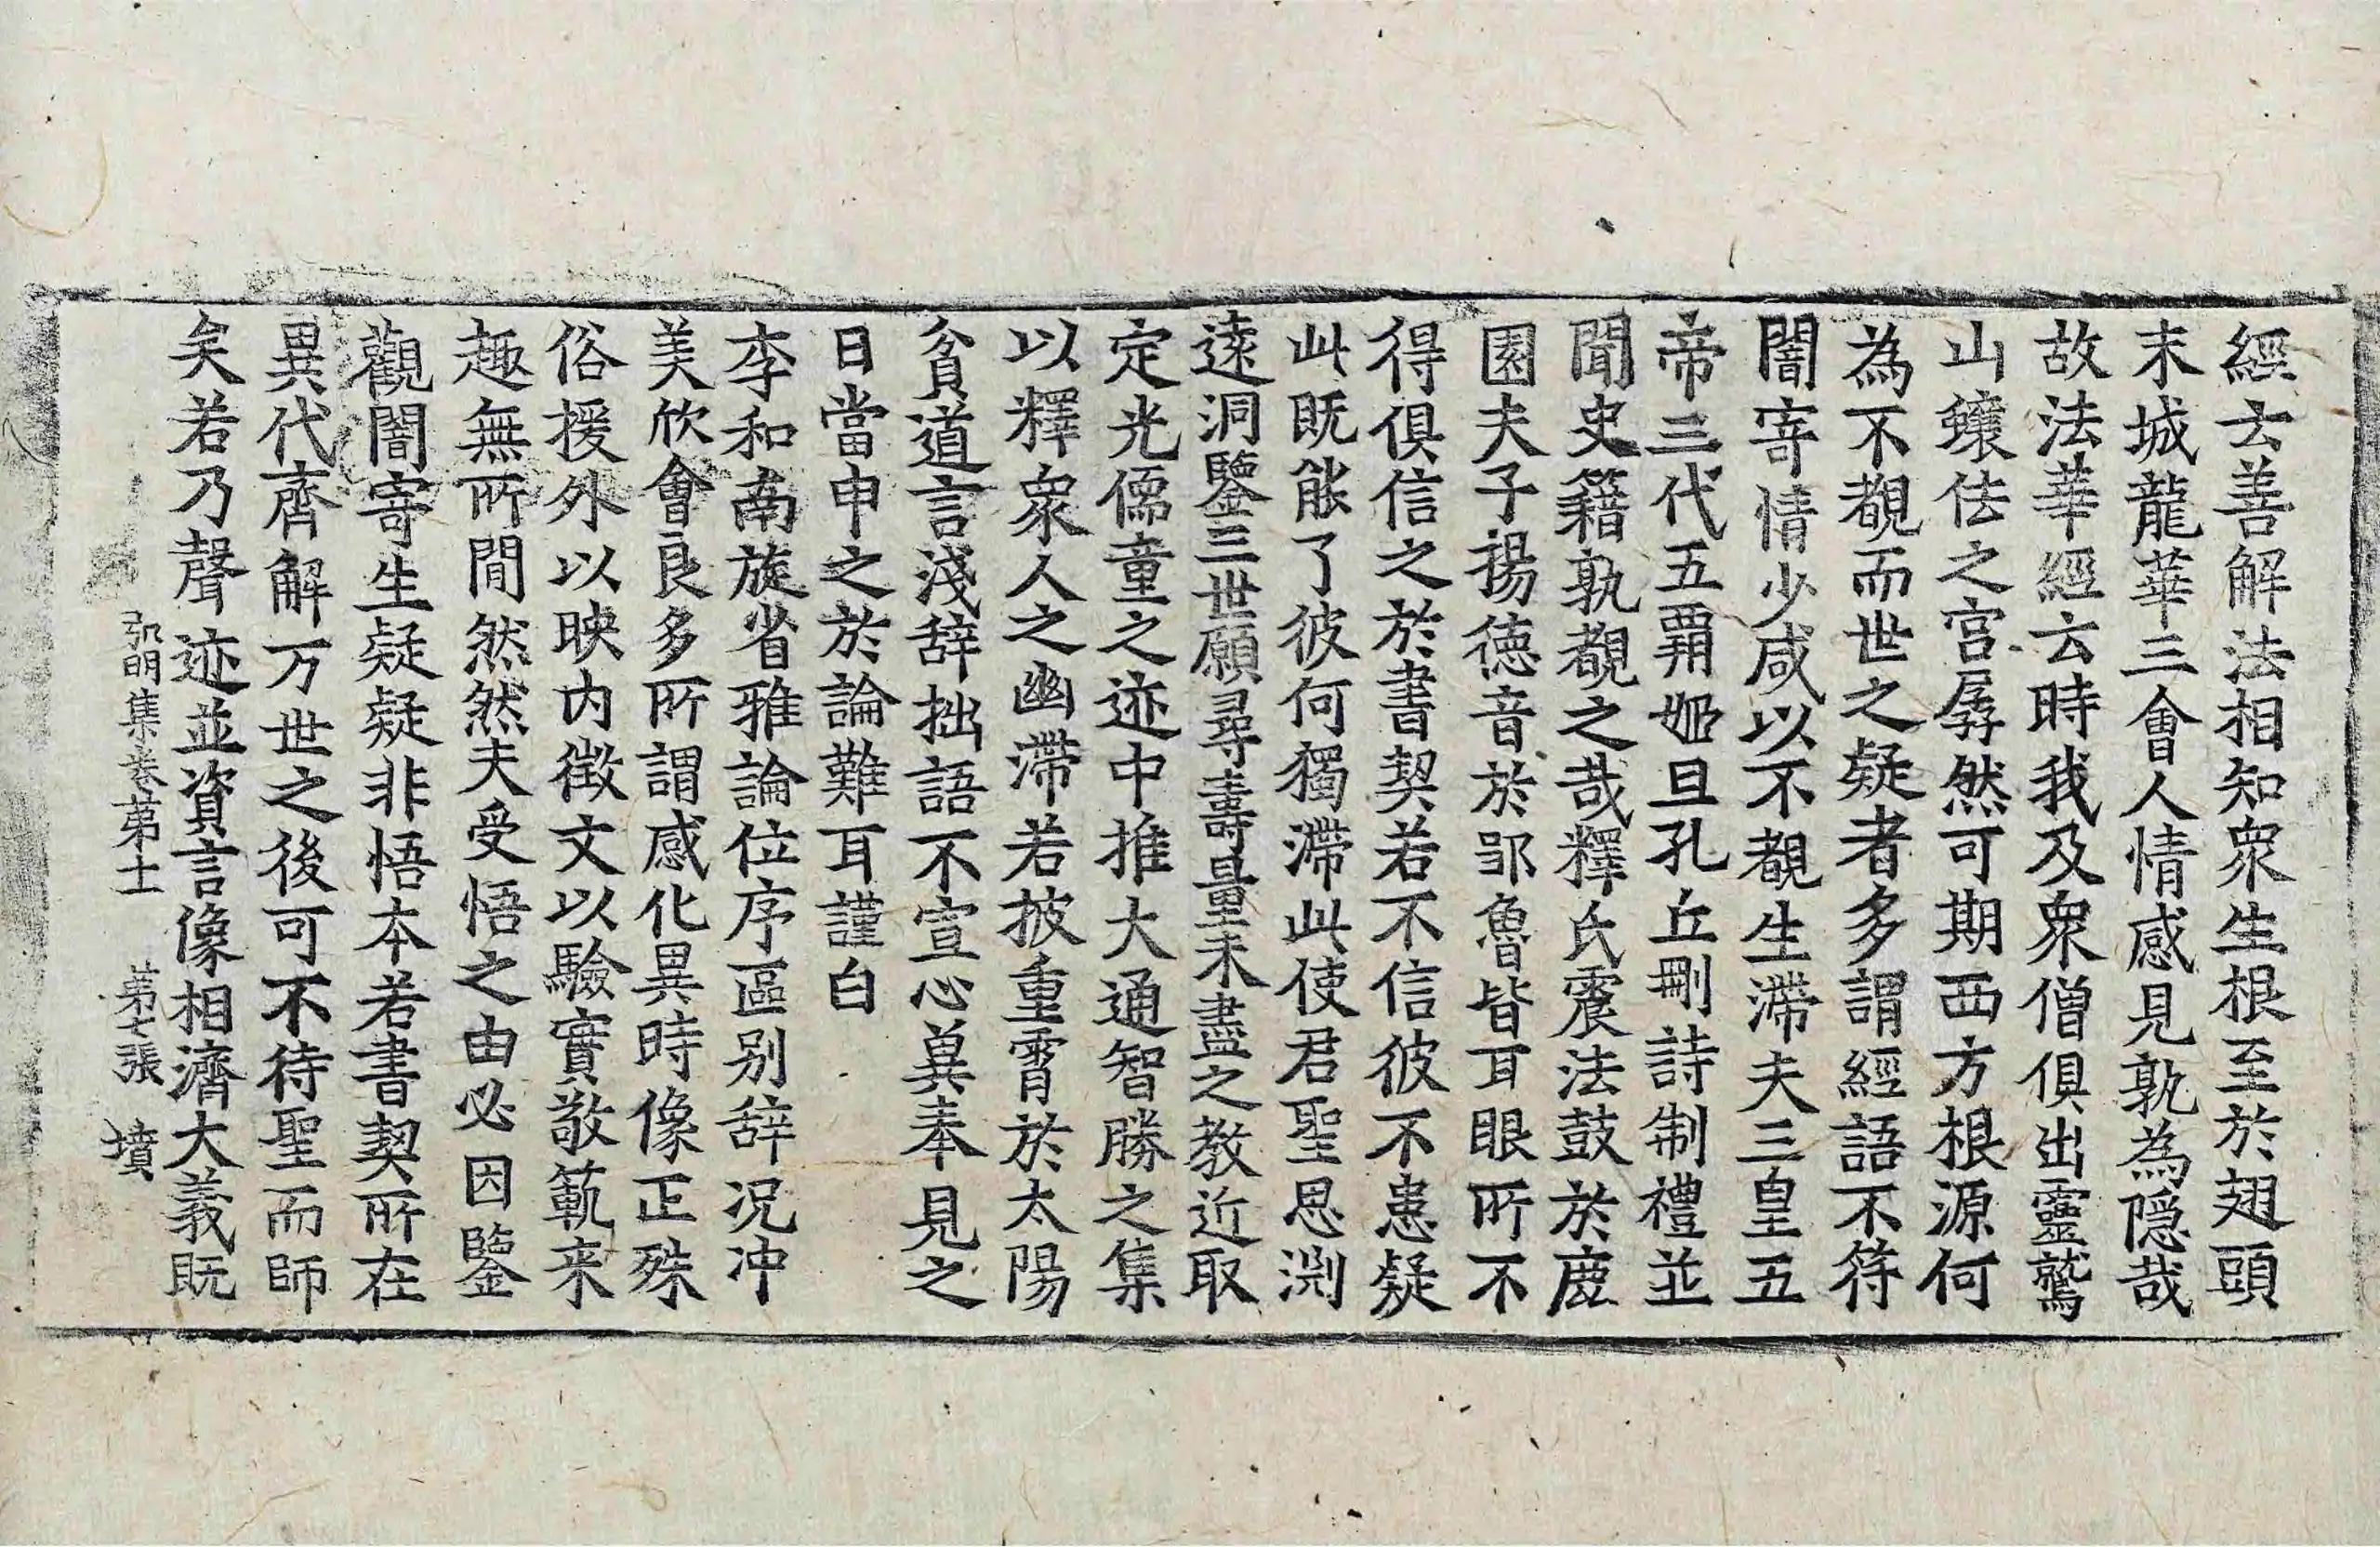 經云善解法相知衆生根至於翅頭
末城龍華三會人情感見孰為隱哉
故法華經云時我及衆僧俱出靈鷲
山蠰佉之宮孱然可期西方根源何
為不覩而世之疑者多謂經語不符
闇寄情少咸以不覩生滯夫三皇五
帝三代五覇姬旦孔丘刪詩制禮並
聞史籍孰覩之哉釋氏震法鼓於鹿
園夫子揚德音於鄒魯皆耳眼所不
得俱信之於書契若不信彼不患疑
此既能了彼何獨滯此使君聖思淵
遠洞鑒三世願尋壽量未盡之教近取
定光儒童之迹中推大通智勝之集
以釋衆人之幽滯若披重霄於太陽
貧道言淺辞拙語不宣心兾奉見之
日當申之於論難耳謹白
李和南旋省雅論位序區別辞況冲
美欣會良多所謂感化異時像正殊
俗援外以映內徵文以驗實敬範来
趣無所間然然夫受悟之由必因鑒
觀闇寄生疑疑非悟本若書契所在
異代齊解万世之後可不待聖而師
矣若乃聲迹並資言像相濟大義既
弘明集卷第十一　第七張　墳